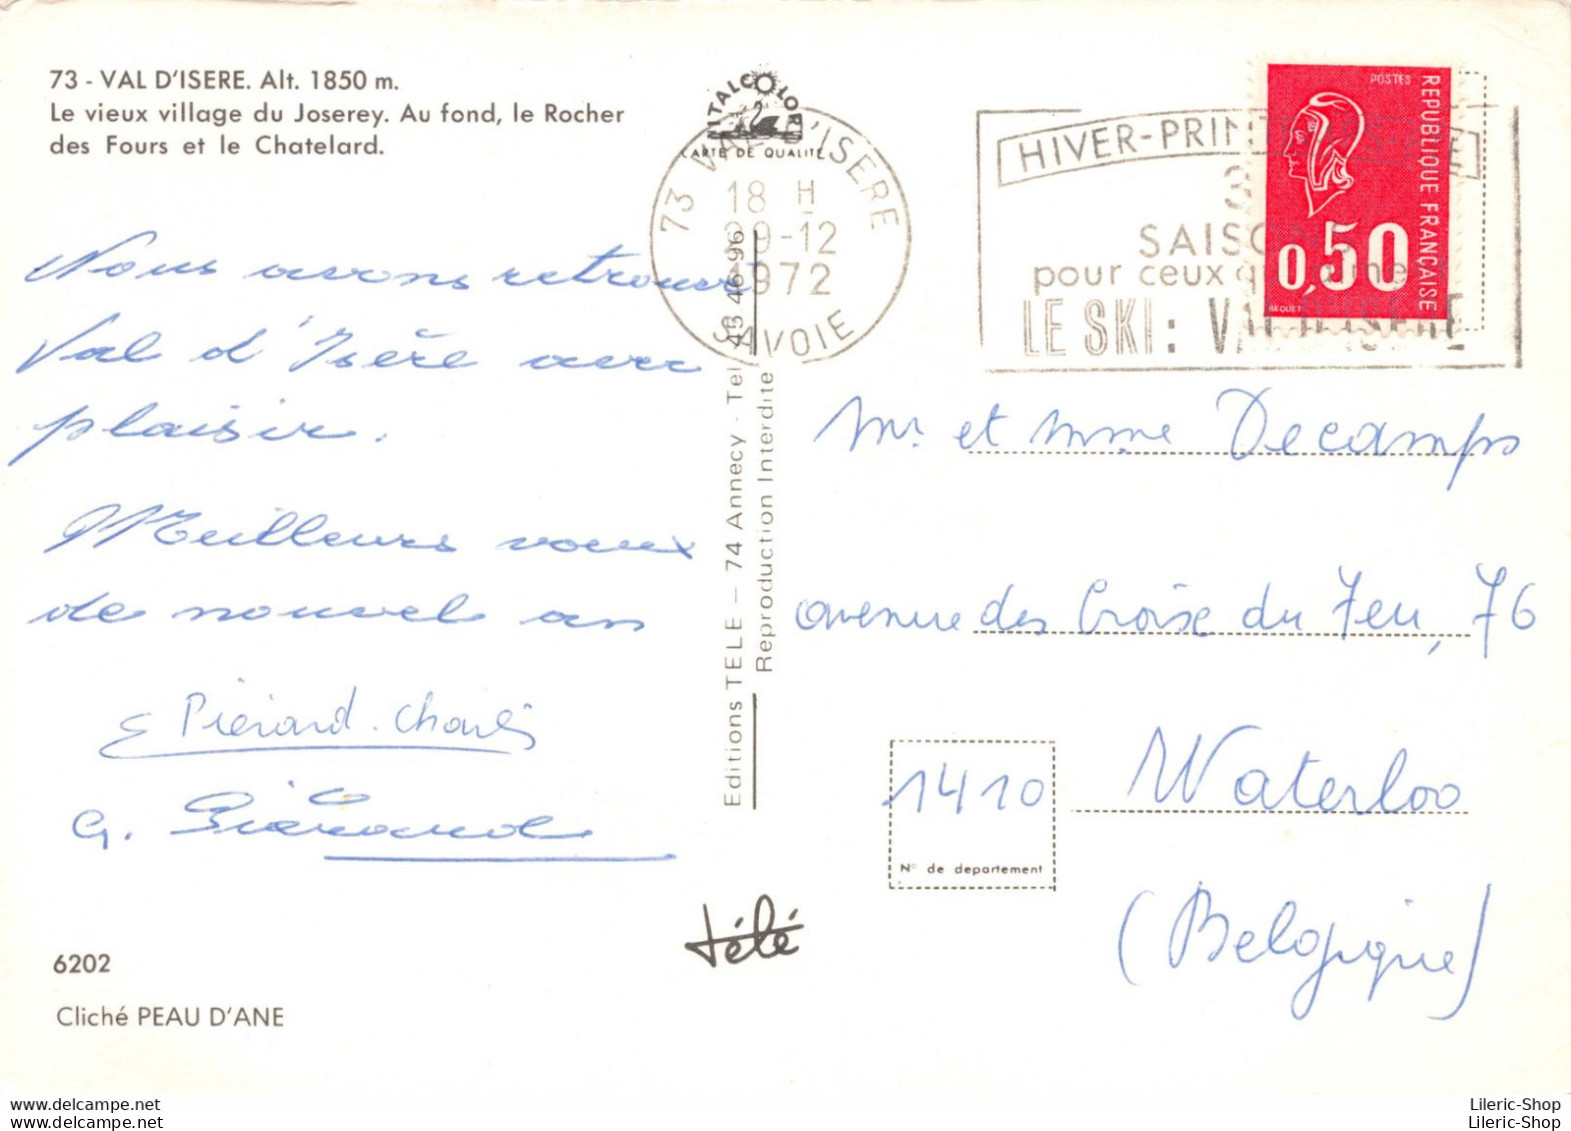 73 - VAL D'ISERE. Alt. 1850 m.
Le vieux village du Joserey. Au fond, le Rocher
des Fours et le Chatelard.
Nous avons retrouvé
Val d'Isère avec
plaisir.
Meilleurs voeux
de nouvel an
Piérard-Charlis
G. Piérard
6202
Cliché PEAU D'ANE
ITALCOLOR
CARTE DE QUALITÉ
73 VAL D'ISERE
18 H
29-12
1972
SAVOIE
Editions TELE — 74 Annecy - Tel 45 46-96
Reproduction Interdite
télé
HIVER-PRIN
SAISO
pour ceux q
LE SKI: VAL D'ISERE
POSTES
REPUBLIQUE FRANÇAISE
0,50
BEQUET
Mr et Mme Decamps
avenue des Croix du Feu, 76
1410
Waterloo
N° de departement
(Belgique)
Lileric-Shop
Lileric-Shop
www.delcampe.net
www.delcampe.net